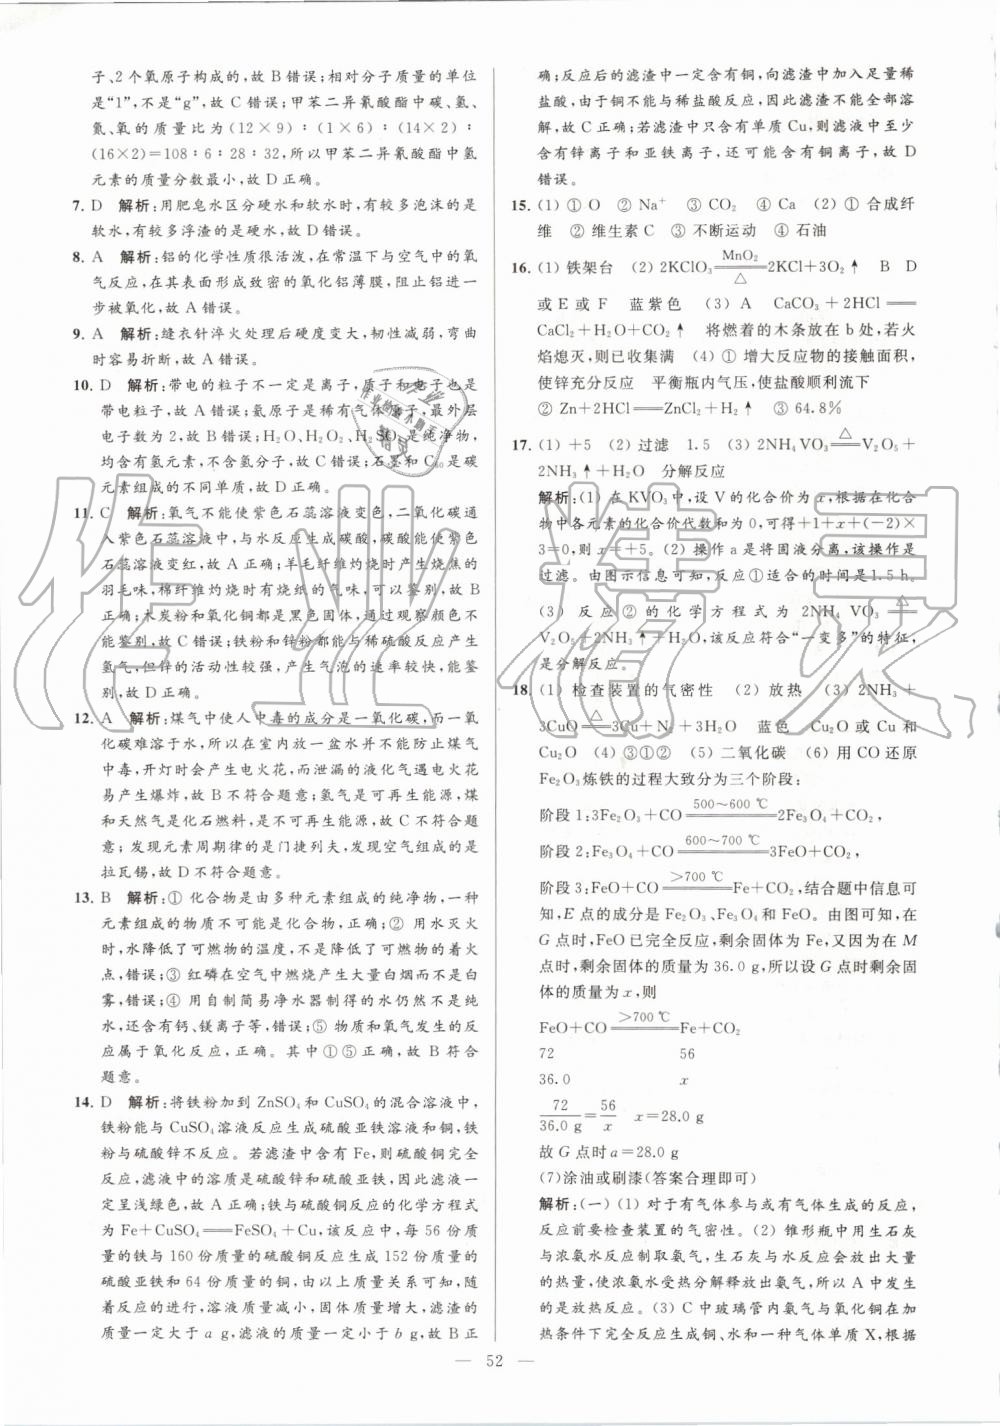 子、2个氧原子构成的,故B错误;相对分子质量的单位
是“1”,不是“g”,故C错误;甲苯二异氰酸酯中碳、氢、
氮、氧的质量比为(12×9)∶(1×6)∶(14×2)∶
(16×2)=108∶6∶28∶32,所以甲苯二异氰酸酯中氢
元素的质量分数最小,故D正确。
7. D 解析:用肥皂水区分硬水和软水时,有较多泡沫的是
软水,有较多浮渣的是硬水,故D错误。
8. A 解析:铝的化学性质很活泼,在常温下与空气中的氧
气反应,在其表面形成致密的氧化铝薄膜,阻止铝进一
步被氧化,故A错误。
9. A 解析:缝衣针淬火处理后硬度变大,韧性减弱,弯曲
时容易折断,故A错误。
10. D 解析:带电的粒子不一定是离子,质子和电子也是
带电粒子,故A错误;氦原子是稀有气体原子,最外层
电子数为2,故B错误;H₂O、H₂O₂、H₂SO₄是纯净物,
均含有氢元素,不含氢分子,故C错误;石墨和C₆₀是碳
元素组成的不同单质,故D正确。
11. C 解析:氧气不能使紫色石蕊溶液变色,二氧化碳通
入紫色石蕊溶液中,与水反应生成碳酸,碳酸能使紫色
石蕊溶液变红,故A正确;羊毛纤维灼烧时产生烧焦的
羽毛味,棉纤维灼烧时有烧纸的气味,可以鉴别,故B
正确;木炭粉和氧化铜都是黑色固体,通过观察颜色不
能鉴别,故C错误;铁粉和锌粉都能与稀硫酸反应产生
氢气,但锌的活动性较强,产生气泡的速率较快,能鉴
别,故D正确。
12. A 解析:煤气中使人中毒的成分是一氧化碳,而一氧
化碳难溶于水,所以在室内放一盆水并不能防止煤气
中毒,开灯时会产生电火花,而泄漏的液化气遇电火花
易产生爆炸,故B不符合题意;氢气是可再生能源,煤
和天然气是化石燃料,是不可再生能源,故C不符合题
意;发现元素周期律的是门捷列夫,发现空气组成的是
拉瓦锡,故D不符合题意。
13. B 解析:① 化合物是由多种元素组成的纯净物,一种
元素组成的物质不可能是化合物,正确;② 用水灭火
时,水降低了可燃物的温度,不是降低了可燃物的着火
点,错误;③ 红磷在空气中燃烧产生大量白烟而不是白
雾,错误;④ 用自制简易净水器制得的水仍然不是纯
水,还含有钙、镁离子等,错误;⑤ 物质和氧气发生的反
应属于氧化反应,正确。其中①⑤正确,故B符合
题意。
14. D 解析:将铁粉加到ZnSO₄和CuSO₄的混合溶液中,
铁粉能与CuSO₄溶液反应生成硫酸亚铁溶液和铜,铁
粉与硫酸锌不反应。若滤渣中含有Fe,则硫酸铜完全
反应,滤液中的溶质是硫酸锌和硫酸亚铁,因此滤液一
定呈浅绿色,故A正确;铁与硫酸铜反应的化学方程式
为Fe+CuSO₄═══FeSO₄+Cu,该反应中,每56份质
量的铁与160份质量的硫酸铜反应生成152份质量的
硫酸亚铁和64份质量的铜,由以上质量关系可知,随
着反应的进行,溶液质量减小,固体质量增大,滤渣的
质量一定大于a g,滤液的质量一定小于b g,故B正
确;反应后的滤渣中一定含有铜,向滤渣中加入足量稀
盐酸,由于铜不能与稀盐酸反应,因此滤渣不能全部溶
解,故C正确;若滤渣中只含有单质Cu,则滤液中至少
含有锌离子和亚铁离子,还可能含有铜离子,故D
错误。
15. (1) ① O ② Na⁺ ③ CO₂ ④ Ca (2) ① 合成纤
维 ② 维生素C ③ 不断运动 ④ 石油
16. (1) 铁架台 (2) 2KClO₃ ═MnO₂/△═ 2KCl+3O₂↑ B D
或E或F 蓝紫色 (3) A CaCO₃+2HCl═══
CaCl₂+H₂O+CO₂↑ 将燃着的木条放在b处,若火
焰熄灭,则已收集满 (4) ① 增大反应物的接触面积,
使锌充分反应 平衡瓶内气压,使盐酸顺利流下
② Zn+2HCl═══ZnCl₂+H₂↑ ③ 64.8%
17. (1) +5 (2) 过滤 1.5 (3) 2NH₄VO₃ ═△═ V₂O₅+
2NH₃↑+H₂O 分解反应
解析:(1) 在KVO₃中,设V的化合价为x,根据在化合
物中各元素的化合价代数和为0,可得+1+x+(−2)×
3=0,则x=+5。(2) 操作a是将固液分离,该操作是
过滤。由图示信息可知,反应①适合的时间是1.5 h。
(3) 反应②的化学方程式为2NH₄VO₃ ═△═
V₂O₅+2NH₃↑+H₂O,该反应符合“一变多”的特征,
是分解反应。
18. (1) 检查装置的气密性 (2) 放热 (3) 2NH₃+
3CuO ═△═ 3Cu+N₂+3H₂O 蓝色 Cu₂O或Cu和
Cu₂O (4) ③①② (5) 二氧化碳 (6) 用CO还原
Fe₂O₃炼铁的过程大致分为三个阶段:
阶段1:3Fe₂O₃+CO ═500~600 ℃═ 2Fe₃O₄+CO₂,
阶段2:Fe₃O₄+CO ═600~700 ℃═ 3FeO+CO₂,
阶段3:FeO+CO ═>700 ℃═ Fe+CO₂,结合题中信息可
知,E点的成分是Fe₂O₃、Fe₃O₄和FeO。由图可知,在
G点时,FeO已完全反应,剩余固体为Fe,又因为在M
点时,剩余固体的质量为36.0 g,所以设G点时剩余固
体的质量为x,则
FeO+CO ═>700 ℃═ Fe+CO₂
72 56
36.0 x
72/36.0 g=56/x x=28.0 g
故G点时a=28.0 g
(7)涂油或刷漆(答案合理即可)
解析:(一) (1) 对于有气体参与或有气体生成的反应,
反应前要检查装置的气密性。(2) 锥形瓶中用生石灰
与浓氨水反应制取氨气,生石灰与水反应会放出大量
的热量,使浓氨水受热分解释放出氨气,所以A中发生
的是放热反应。(3) C中玻璃管内氨气与氧化铜在加
热条件下完全反应生成铜、水和一种气体单质X,根据
— 52 —
作业精灵